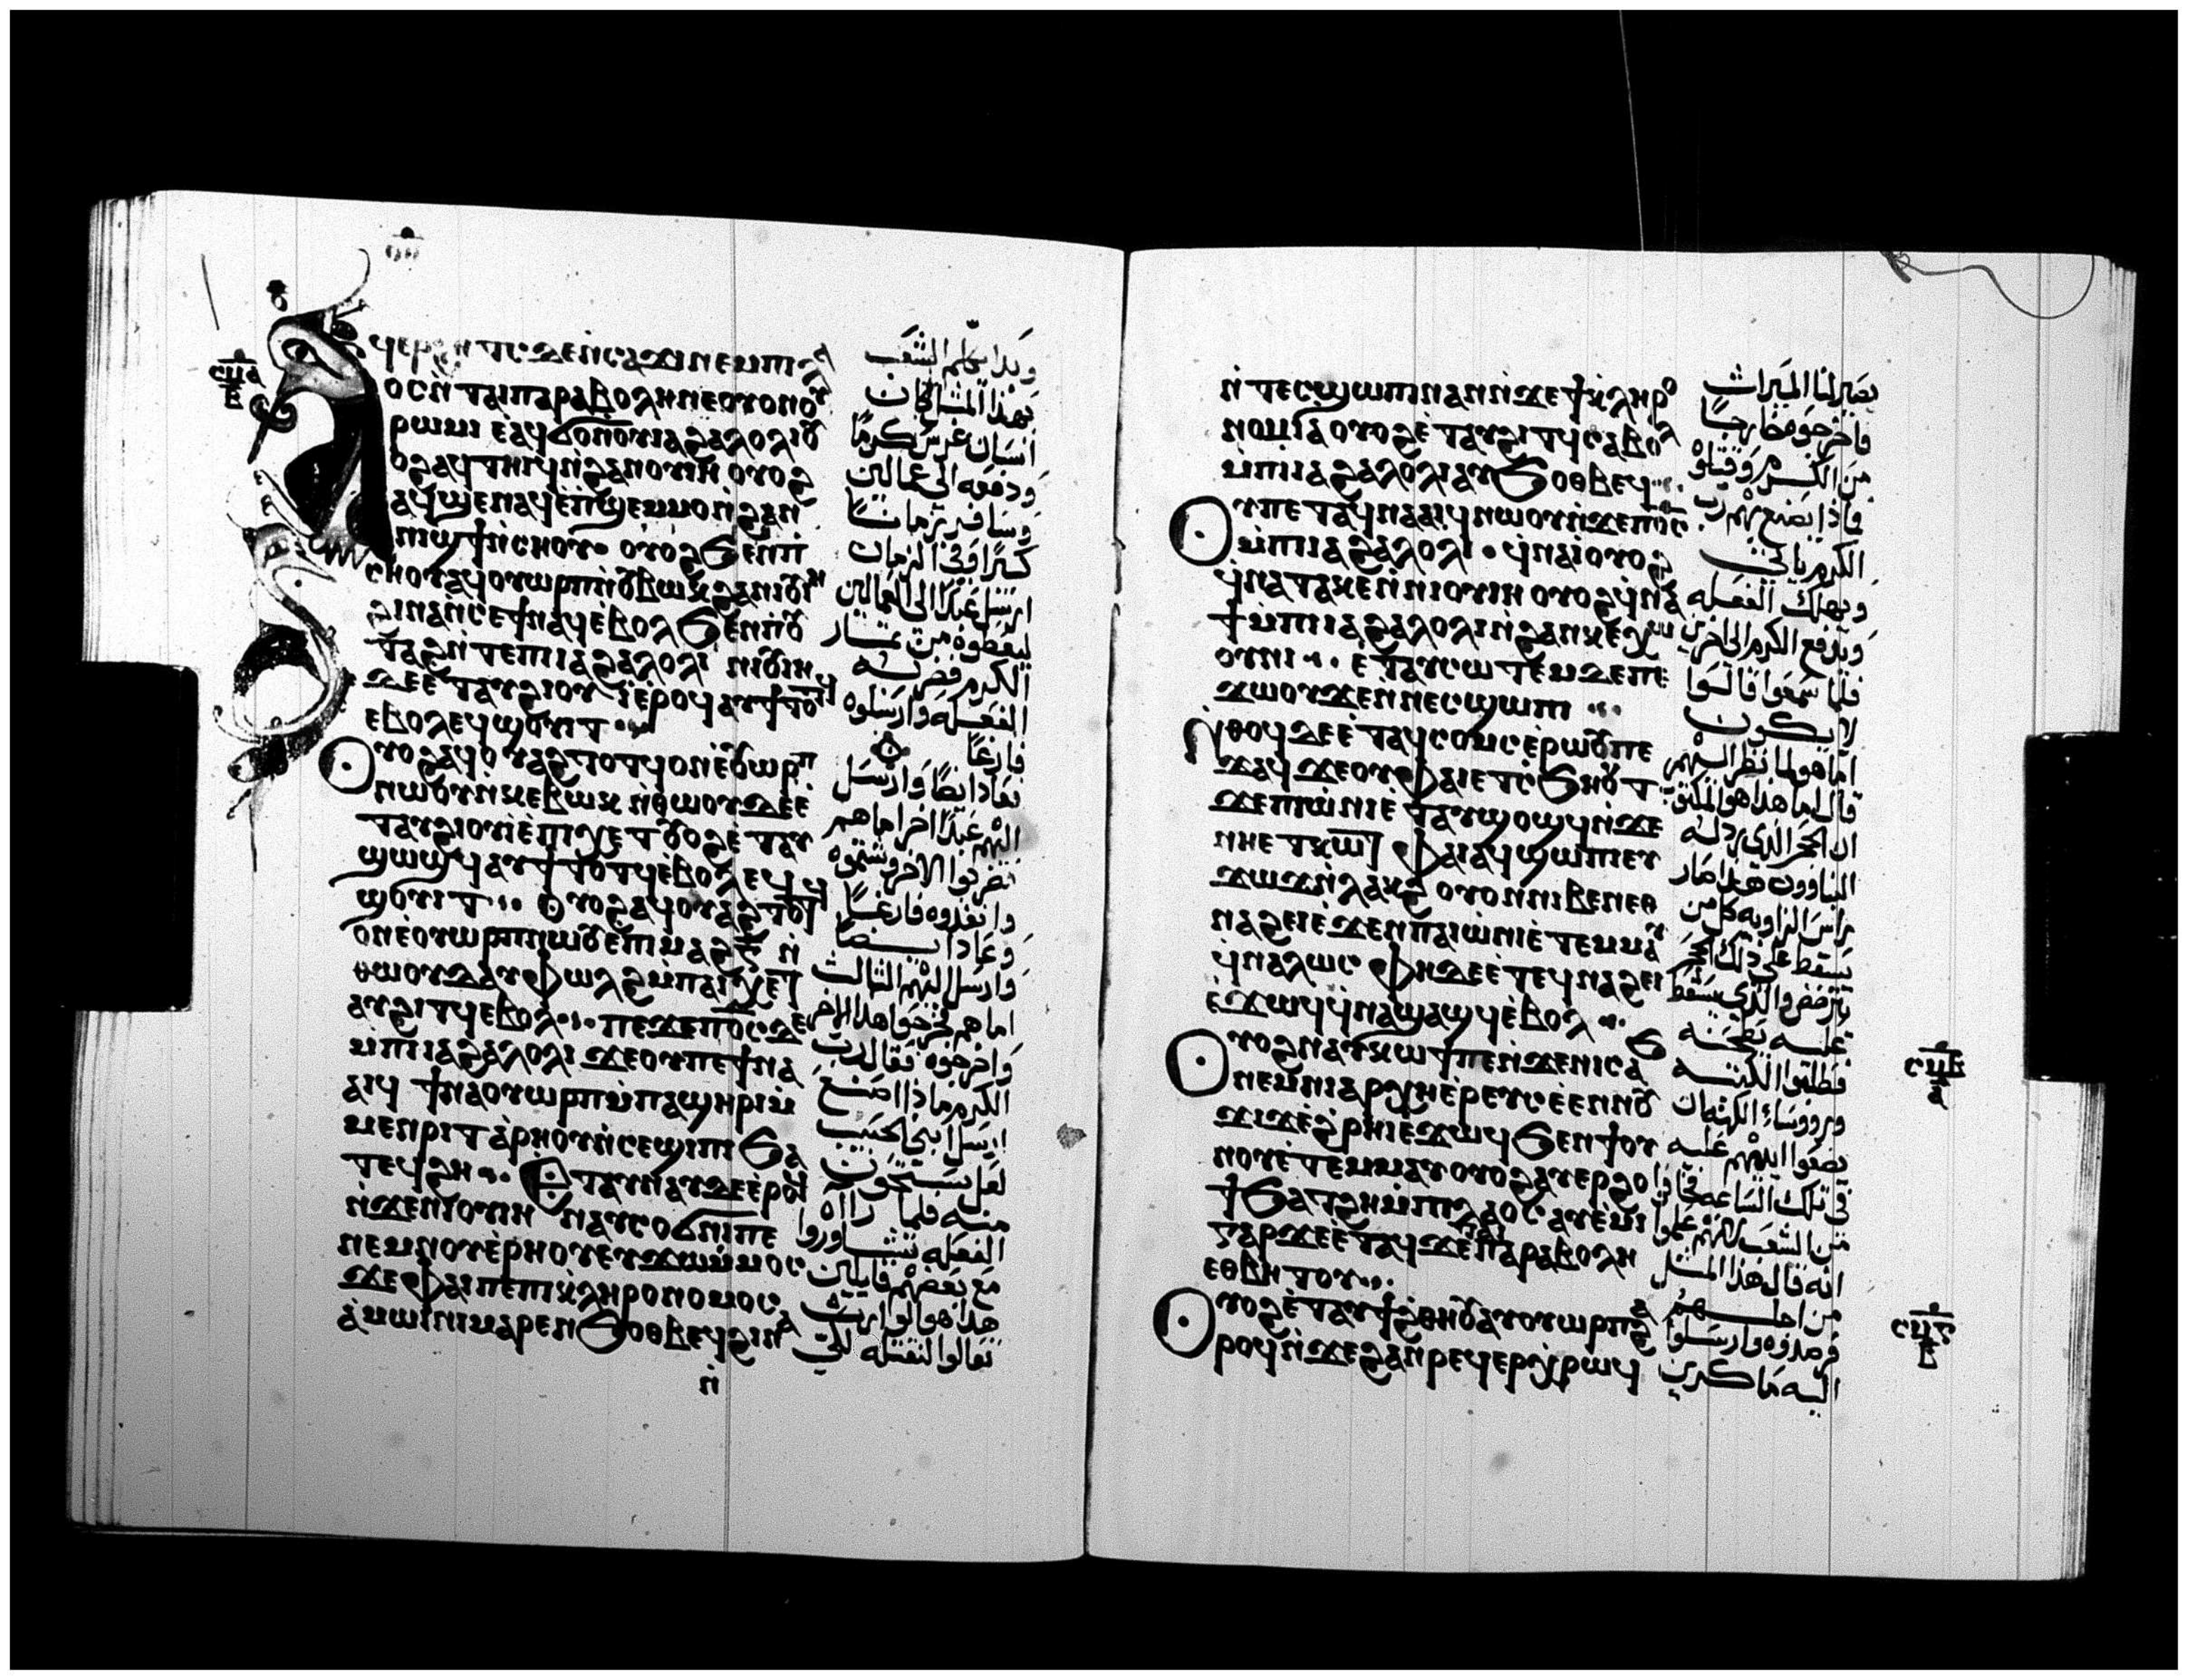 ⲁϥⲉⲣϩⲏⲧⲥ ⲇⲉ ⲛ̀ⲥⲁϫⲓ ⲛⲉⲙ ⲡⲓⲗⲁ
ⲟⲥ ⲛ̀ⲧⲁⲓⲡⲁⲣⲁⲃⲟⲗⲏ ⲛⲉ ⲟⲩⲟⲛ ⲟⲩ
ⲣⲱⲙⲓ ⲉ̀ⲁϥϭⲟ ⲛⲟⲩⲓⲁϩⲁⲗⲟⲗⲓ ⲟⲩ
ⲟϩ ⲁϥⲧⲏⲓϥ ⲛ̀ϩⲁⲛⲟⲩⲓⲏ ⲟⲩⲟϩ
ⲁϥϣⲉⲛⲁϥ ⲉ̀ⲡϣⲉⲙⲙⲟ ⲛ̀ϩⲁⲛ
ⲛⲓϣϯ ⲛ̀ⲥⲏⲟⲩ. ⲟⲩⲟϩ ϧⲉⲛ ⲡⲓ
ⲥⲏⲟⲩ ⲁϥⲟⲩⲱⲣⲡ ⲛ̀ⲟⲩⲃⲱⲕ ϩⲁ ⲛⲓⲟⲩⲓⲏ
ϩⲓⲛⲁ ⲛ̀ⲥⲉϯ ⲛⲁϥ ⲉⲃⲟⲗ ϧⲉⲛ ⲡⲟⲩ
ⲧⲁϩ ⲛ̀ⲧⲉ ⲡⲓⲓⲁϩⲁⲗⲟⲗⲓ ⲛⲓⲟⲩⲓⲏ
ⲇⲉ ⲉ̀ⲧⲁⲩϩⲓⲟⲩⲓ̀ ⲉ̀ⲣⲟϥ ⲁⲩϯⲧⲟⲧϥ
ⲉⲃⲟⲗ ⲉϥϣⲟⲩⲓⲧ
ⲟⲩⲟϩ ⲁϥⲟⲩⲁϩⲧⲟⲧϥ ⲟⲛ ⲉ̀ⲟⲩⲱⲣⲡ
ⲛⲱⲟⲩ ⲛ̀ⲕⲉⲃⲱⲕ ⲛ̀ⲑⲱⲟⲩ ⲇⲉ ⲉ̀
ⲧⲁⲩϩⲓⲟⲩⲓ̀ ⲉ̀ⲡⲓⲭⲉⲧ ⲟⲩⲟϩ ⲉ̀ⲧⲁⲩ
ϣⲱϣϥ ⲁⲩϯⲧⲟⲧϥ ⲉ̀ⲃⲟⲗ ⲉϥ
ϣⲟⲩⲓⲧ. ⲟⲩⲟϩ ⲁϥⲟⲩⲁϩⲧⲟⲧϥ
ⲟⲛ ⲉ̀ⲟⲩⲱⲣⲡ ⲛⲱⲟⲩ ⲉ̀ⲡⲓⲙⲁϩ ⲅ̅ ⲛ̀
ⲑⲱⲟⲩ ⲇⲉ ⲁⲩⲫⲱⲗϩ ⲙ̀ⲡⲁⲓⲭⲉⲧ
ⲁⲩϩⲓⲧϥ ⲉⲃⲟⲗ. ⲡⲉϫⲉ ⲡ̅ⲟ̅ⲥ̅ ⲇⲉ
ⲙ̀ⲡⲓⲓⲁϩⲁⲗⲟⲗⲓ ϫⲉ ⲟⲩ ⲡⲉϯⲛⲁ
ⲁⲓϥ ϯⲛⲁⲟⲩⲱⲣⲡ ⲙ̀ⲡⲁϣⲏⲣⲓ ⲙ̀
ⲙⲉⲛⲣⲓⲧ ⲁ̀ⲣⲏⲟⲩ ⲛ̀ⲥⲉϣⲓⲡⲓ ϧⲁ
ⲧⲉϥϩⲏ. ⲉ̀ⲧⲁⲩⲛⲁⲩ ⲇⲉ ⲉ̀ⲣⲟϥ
ⲛ̀ϫⲉ ⲛⲓⲟⲩⲓⲏ ⲛⲁⲩⲥⲟϭⲛⲓ ⲡⲉ
ⲛⲉⲙ ⲛⲟⲩⲉ̀ⲣⲏⲟⲩ ⲉⲩϫⲱ ⲙ̀ⲙⲟⲥ
ϫⲉ ⲫⲁⲓ ⲡⲉ ⲡⲓⲕ̀ⲗⲏⲣⲟⲛⲟⲙⲟⲥ
ⲁ̀ⲙⲱⲓⲛⲓ ⲙⲁⲣⲉⲛϧⲟⲑⲃⲉϥ ϩⲓⲛⲁ
ⲛ̀
وبدا يكلم الشعب
بهذا المثل كان
انسان غرس كرما
ودفعه الى عمالين
وسافر زمانا
كثيرا وفي الزمان
ارسل عبدا الى العمالين
ليعطوه من ثمار
الكرم فضربه
الفعله وارسلوه
فارغا
فعاد ايضا وارسل
اليهم عبدا اخر اما هم
فضربوا الاخر وشتموه
وانفذوه فارغا
وعاد ايضا
وارسل اليهم الثالث
اما هم فجرحوا هذا الاخر
واخرجوه فقال رب
الكرم ماذا اصنع
ارسل ابني الحبيب
لعل يستحيون
منه فلما راه
الفعله تشاوروا
مع بعضهم قايلين
هذا هو الوارث
تعالوا لنقتله لكي
ⲛ̀ⲧⲉⲥϣⲱⲡⲓ ⲛⲁⲛ ⲛ̀ϫⲉ ϯⲕ̀ⲗⲏⲣⲟ
ⲛⲟⲙⲓⲁ̀ ⲟⲩⲟϩ ⲉ̀ⲧⲁⲩϩⲓⲧϥ ⲥⲁⲃⲟⲗ
ⲙ̀ⲡⲓⲓⲁϩⲁⲗⲟⲗⲓ ⲁⲩϧⲟⲑⲃⲉϥ
ⲟⲩ ⲡⲉ ⲧⲁϥⲛⲁⲁⲓϥ ⲛⲱⲟⲩ ⲛ̀ϫⲉ ⲡ̅ⲟ̅ⲥ̅
ⲙ̀ⲡⲓⲓⲁϩⲁⲗⲟⲗⲓ. ϥ̀ⲛⲁⲓ̀ ⲟⲩⲟϩ
ϥ̀ⲛⲁⲧⲁⲕⲉ ⲛ̀ⲛⲓⲟⲩⲓⲏ ⲟⲩⲟϩ ϥ̀ⲛⲁ
ϯ ⲙ̀ⲡⲓⲓⲁϩⲁⲗⲟⲗⲓ ⲛ̀ϩⲁⲛⲕⲉⲭⲱ
ⲟⲩⲛⲓ. ⲉ̀ⲧⲁⲩⲥⲱⲧⲉⲙ ⲇⲉ ⲡⲉ
ϫⲱⲟⲩ ϫⲉ ⲛ̀ⲛⲉⲥϣⲱⲡⲓ
ⲛ̀ⲑⲟϥ ⲇⲉ ⲉ̀ⲧⲁϥⲥⲟⲙⲥ ⲉ̀ⲣⲱⲟⲩ ⲡⲉ
ϫⲁϥ ϫⲉ ⲟⲩ ⲫⲁⲓ ⲉⲧⲥ̀ϧⲏⲟⲩⲧ
ϫⲉ ⲡⲓⲱ̀ⲛⲓ ⲉ̀ⲧⲁⲩϣⲟϣϥ ⲛ̀ϫⲉ
ⲛⲏⲉⲧⲕⲱⲧ ⲫⲁⲓ ⲁϥϣⲱⲡⲓ ⲉⲩ
ϫⲱϫ ⲛ̀ⲗⲁⲕϩ ⲟⲩⲟⲛ ⲛⲓⲃⲉⲛ ⲉⲑ
ⲛⲁϩⲉⲓ ⲉ̀ϫⲉⲛ ⲡⲁⲓⲱ̀ⲛⲓ ⲉ̀ⲧⲉⲙⲙⲁⲩ
ϥ̀ⲛⲁⲗⲱⲥ ⲫⲏ ⲇⲉ ⲉ̀ⲧⲉϥⲛⲁϩⲉⲓ
ⲉ̀ϫⲱϥ ϥ̀ⲛⲁϣⲁϣϥ ⲉ̀ⲃⲟⲗ
ⲟⲩⲟϩ ⲛⲁⲩⲕⲱϯ ⲡⲉ ⲛ̀ϫⲉ ⲛⲓⲥⲁϧ
ⲛⲉⲙ ⲛⲓⲁⲣⲭⲏⲉ̀ⲣⲉⲩⲥ ⲉ̀ⲉⲛ ⲛⲟⲩ
ϫⲓϫ ⲉ̀ϩ̀ⲣⲏⲓ ⲉ̀ϫⲱϥ ϧⲉⲛ ϯⲟⲩ
ⲛⲟⲩ ⲉ̀ⲧⲉⲙⲙⲁⲩ ⲟⲩⲟϩ ⲁⲩⲉⲣϩⲟ
ϯ ϧⲁⲧϩⲏ ⲙ̀ⲡⲓⲗⲁⲟⲥ ⲁⲩⲉ̀ⲙⲓ
ⲅⲁⲣ ϫⲉ ⲉ̀ⲧⲁϥϫⲉ ⲡⲁⲣⲁⲃⲟⲗⲏ
ⲉⲑⲃⲏⲧⲟⲩ
ⲟⲩⲟϩ ⲉ̀ⲧⲁⲩϯϩ̀ⲑⲏⲟⲩ ⲁⲩⲟⲩⲱⲣⲡ ϩⲁ
ⲣⲟϥ ⲛ̀ϫⲉ ϩⲁⲛⲣⲉϥⲉⲣⲭⲣⲱϥ
يصير لنا الميراث
فاخرجوه خارجا
من الكرم وقتلوه
فماذا يصنع بهم رب
الكرم ياتي
ويهلك الفعله
ويدفع الكرم الى اخرين
فلما سمعوا قالوا
لا يكون
اما هو لما نظر اليهم
قال لهم ما هذا هو المكتوب
ان الحجر الذي رذله
البناوون هذا صار
راس الزاويه كل من
يسقط على ذلك الحجر
يترضض والذي يسقط
عليه يطحنه
فطلبوا الكتبه
وروساء الكهنه ان
يضعوا ايديهم عليه
في تلك الساعه فخافوا
من الشعب لانهم علموا
انه قال هذا المثل
من اجلهم
فرصدوه وارسلوا
اليه ماكرين
ⲥⲙⲃ
ⲁ